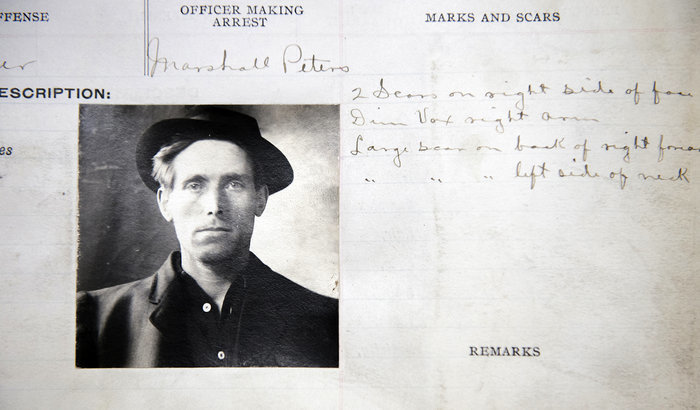 FFENSE
OFFICER MAKING
ARREST
MARKS AND SCARS
er
Marshall Peters
ESCRIPTION:
2 Scars on right side of face
Dim Vox right arm
es
Large scar on back of right forear
" " " left side of neck
REMARKS